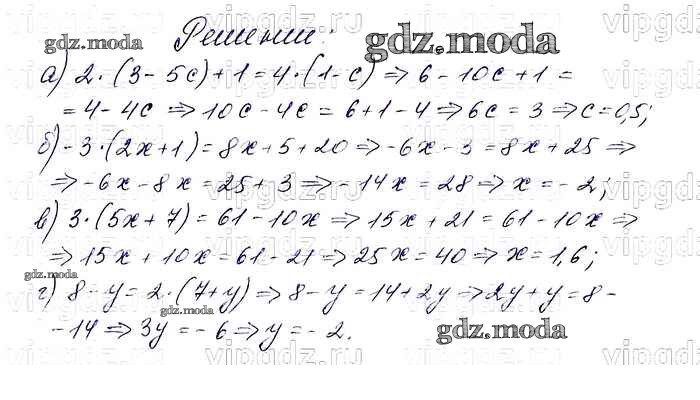 Решение:
gdz.moda
gdz.moda
а) 2·(3-5c)+1=4·(1-c) ⇒ 6-10c+1=
=4-4c ⇒ 10c-4c=6+1-4 ⇒ 6c=3 ⇒ c=0,5;
б) -3·(2x+1)=8x+5+20 ⇒ -6x-3=8x+25 ⇒
⇒ -6x-8x=25+3 ⇒ -14x=28 ⇒ x=-2;
в) 3·(5x+7)=61-10x ⇒ 15x+21=61-10x ⇒
⇒ 15x+10x=61-21 ⇒ 25x=40 ⇒ x=1,6;
gdz.moda
г) 8-y=2·(7+y) ⇒ 8-y=14+2y ⇒ 2y+y=8-
-14 ⇒ 3y=-6 ⇒ y=-2.
gdz.moda
gdz.moda